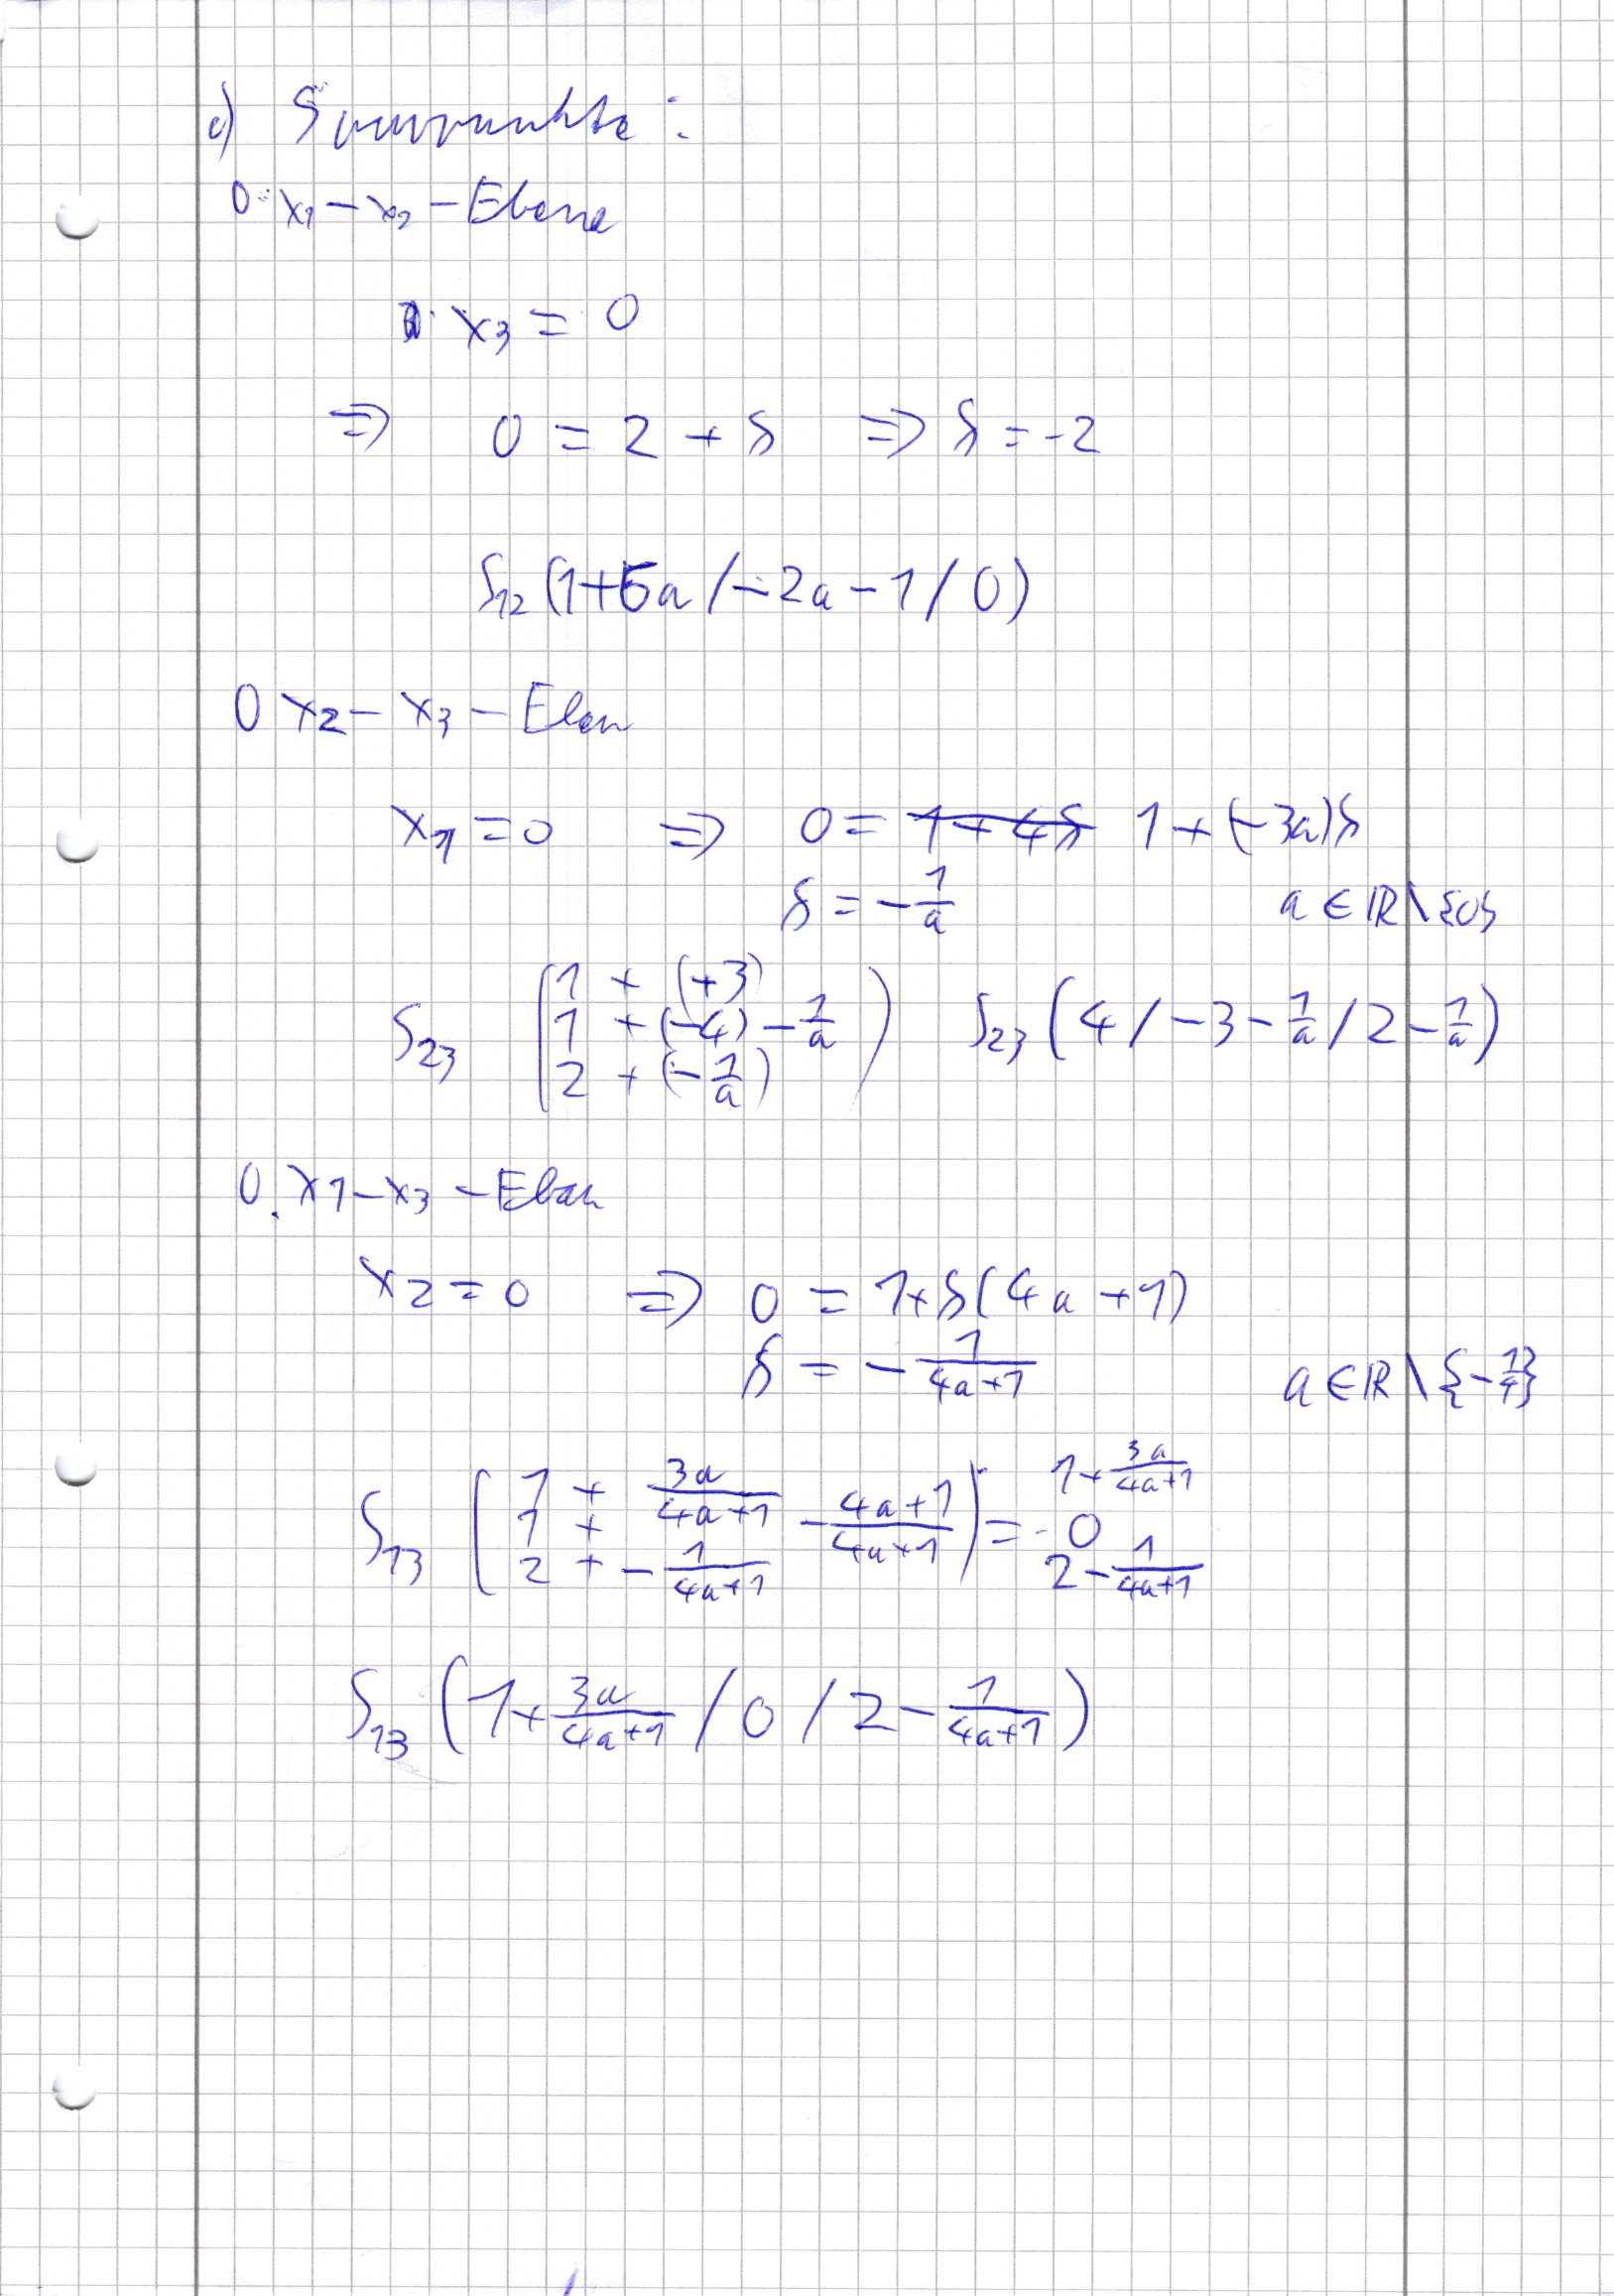 c) Spurpunkte:
0. x₁ – x₂ – Ebene
x₃ = 0
⇒ 0 = 2 + s ⇒ s = -2
S₁₂ (1+6a / -2a - 1 / 0)
0 x₂ – x₃ – Eben
x₁ = 0 ⇒ 0 = ~~1 + 4s~~ 1 + (-3a)s
s = -1/a a ∈ ℝ \ {0}
S₂₃ (1 + (+3) S₂₃ (4 / -3 - 1/a / 2 - 1/a)
1 + (-4) - 1/a)
2 + (-1/a)
0. x₁ – x₃ – Eben
x₂ = 0 ⇒ 0 = 1 + s(4a + 1)
s = - 1/(4a+1) a ∈ ℝ \ {-1/4}
S₁₃ (1 + 3a/(4a+1) 1 + 3a/(4a+1)
1 + - (4a+1)/(4a+1)) = 0
2 + - 1/(4a+1) 2 - 1/(4a+1)
S₁₃ (1 + 3a/(4a+1) / 0 / 2 - 1/(4a+1))